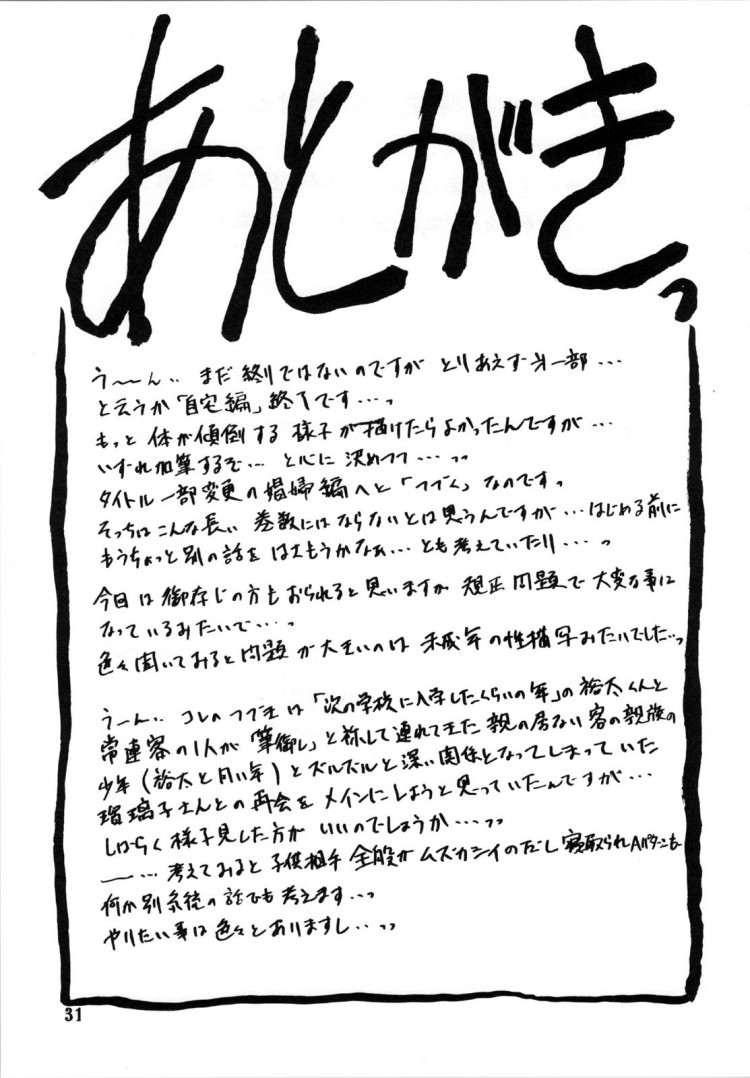 あとがきっ
う〜〜ん.. まだ終りではないのですが とりあえず 一部...
と云うか「自宅編」終了です...っ
もっと 体が傾倒する 様子が描けたらよかったんですが...
いずれ加筆するぞ... と心に 決めつつ...っ
タイトル一部変更の娼婦編へと「つづく」なのですっ
そっちはこんな長い 巻数にはならないとは思うんですが...はじめる前に
もうちょっと別の話を はさもうかなぁ... とも考えていたり...っ
今回は御存じの方もおられると思いますが 規正問題で大変な事に
なっているみたいで...っ
色々聞いてみると問題が大きいのは 未成年の性描写みたいでした..っ
うーん.. コレのつづきは「次の学校に入学したくらいの年」の裕太くんと
常連客の1人が「筆御し」と称して連れてきた 親の居ない客の親族の
少年(裕太と同い年)とズルズルと深い関係となってしまっていた
瑠璃子さんとの再会をメインにしようと思っていたんですが...
しばらく様子見した方が いいのでしょうか...っっ
ー... 考えてみると子供相手全般がムズカシイのだし 寝取られAパターンも
何か別系統の話でも考えます...っ
やりたい事は色々とありますし...っっ
31